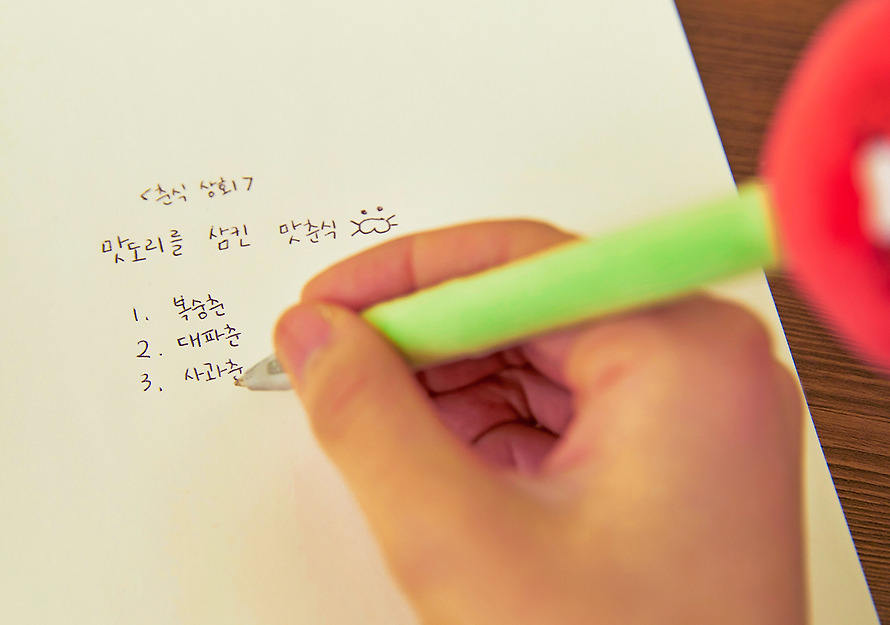 <춘식 상회>
맛도리를 삼킨 맛춘식
1. 복숭춘
2. 대파춘
3. 사과춘